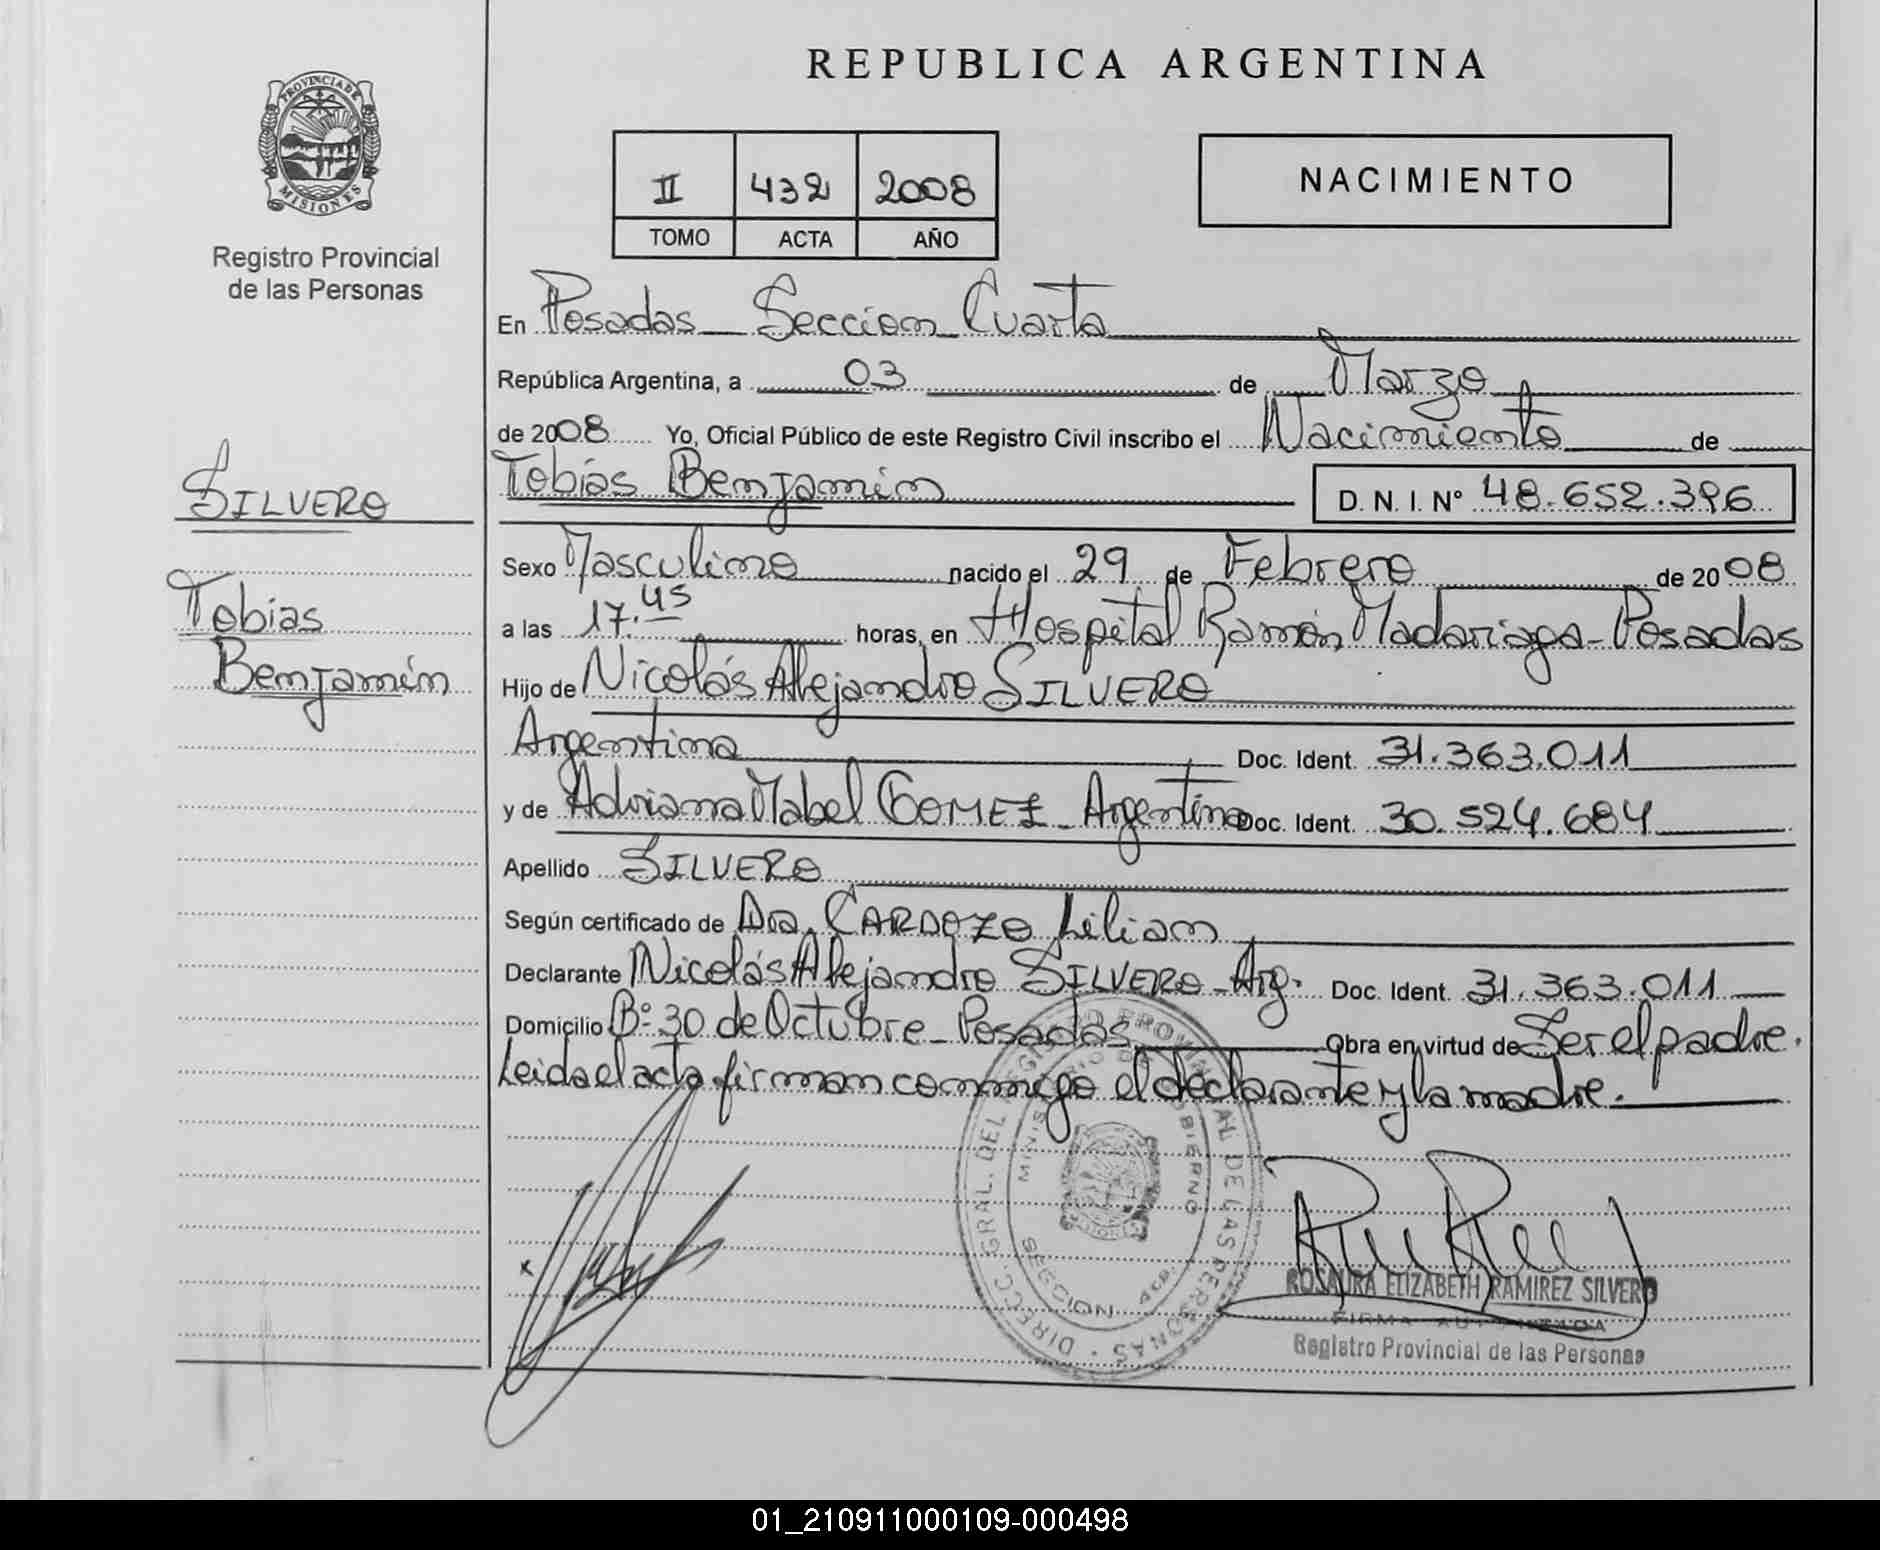 REPUBLICA ARGENTINA
PROVINCIA DE
MISIONES
Registro Provincial
de las Personas
II 432 2008
TOMO ACTA AÑO
NACIMIENTO
En Posadas - Seccion Cuarta
República Argentina, a 03 de Marzo
de 2008 Yo, Oficial Público de este Registro Civil inscribo el Nacimiento de
Tobías Benjamín D. N. I. N° 48.652.396
SILVERO
Tobias
Benjamín
Sexo Masculino nacido el 29 de Febrero de 2008
a las 17:45 horas, en Hospital Ramón Madariaga - Posadas
Hijo de Nicolás Alejandro SILVERO
Argentina Doc. Ident. 31.363.011
y de Adriana Mabel GOMEZ - Argentina Doc. Ident. 30.524.684
Apellido SILVERO
Según certificado de Dra. CARDOZO Lilian
Declarante Nicolás Alejandro SILVERO - Arg. Doc. Ident. 31.363.011
Domicilio B° 30 de Octubre - Posadas Obra en virtud de Ser el padre.
Leida el acta firman conmigo el declarante y la madre.
DIRECC. GRAL. DEL REGISTRO PROVINCIAL DE LAS PERSONAS
MINISTERIO DE GOBIERNO
x
ROSAURA ELIZABETH RAMIREZ SILVERO
FIRMA AUTORIZADA
Registro Provincial de las Personas
01_210911000109-000498